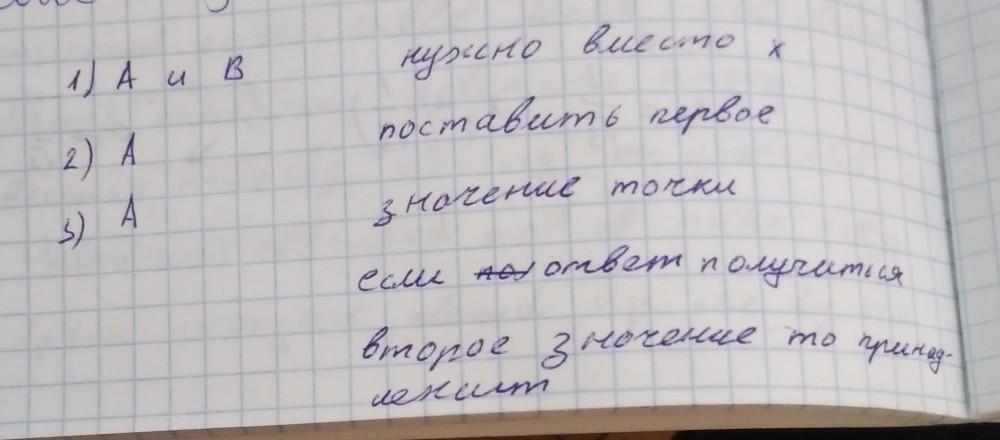 1) А и В
2) А
3) А
нужно вместо х
поставить первое
значение точки
если ответ получиться
второе значение то принад-
лежит